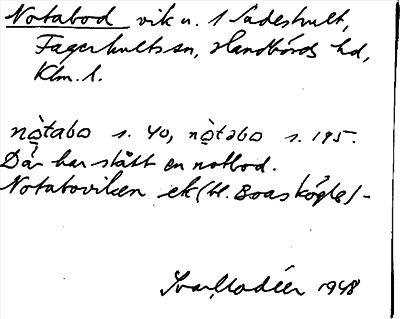 Notabod vik u. 1 Ladeshult,
Fagerhults sn, Handbörds hd,
Klm. l.
nò̤tabo s. 40, nò̤tabo s. 195.
Där har stått en notbod.
Notaboviken ek (bl. Boaskögle) -
Ivar Modéer 1948